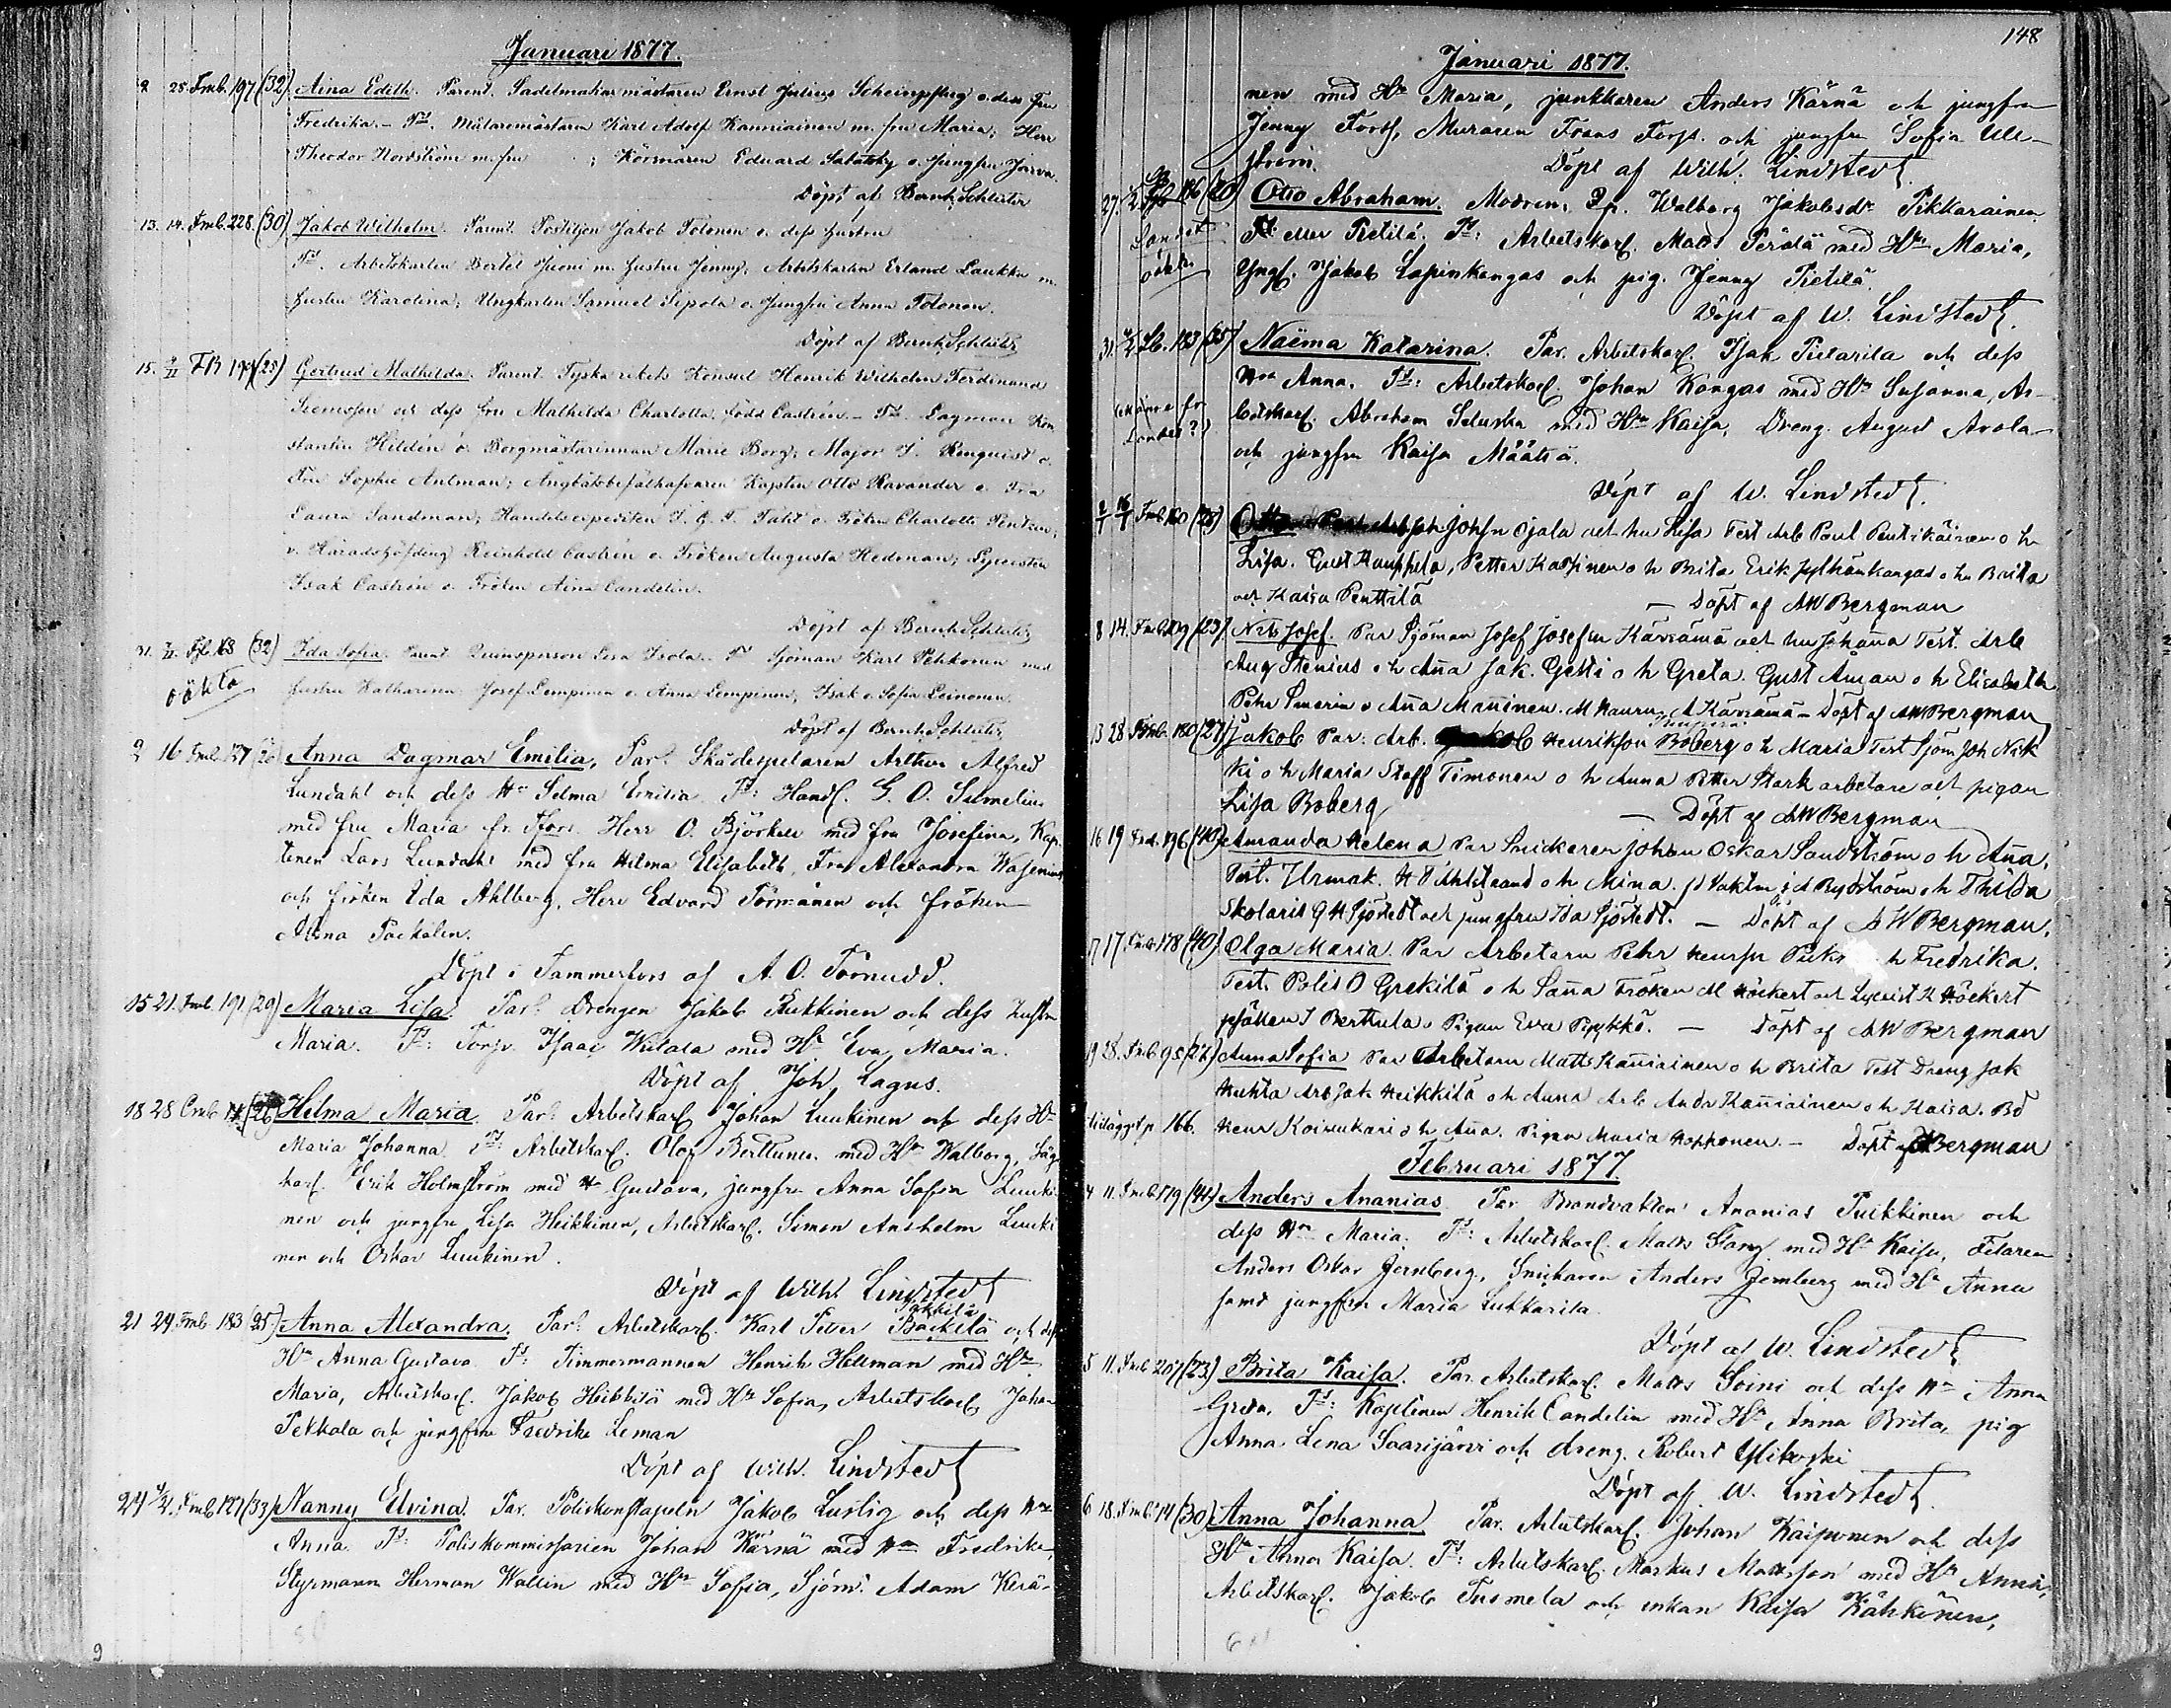 Januari 1877.
2 28 Fmb. 197 (32) Aina Edith. Parent. Sadelmakarmästaren Ernst Julius o. dess fru
Fredrika. - Tt. Målaremästaren Karl Adolf Kanniainen m. fru Maria; Herr
Theodor Nordström m. fru ; Körsnären Eduard o. Jungfru
Döpt af Bernh. Schlüter
13. 14. Fmb. 228. (30) Jakob Wilhelm. Parent. Postiljon Jakob Tolonen o. dess hustru
Tt. Arbetskarlen Bertel Juoni m. hustru Jenny; Arbetskarlen Erland Laukka m.
hustru Karolina; Ungkarlen Samuel Sipola o. Jungfru Anna Tolonen.
Döpt af Bernh. Schlüter
15. FB (25) Gertrud Mathilda. Parent. Tyska rikets Konsul Henrik Wilhelm Ferdinand
och dess fru Mathilda Charlotta, född Castrén. - Tt. Lagman Kon
stantin Hildén o. Borgmästarinnan Marie Borg; Major J. o.
Fru Sophie Antman; Ångbåtsbefälhafvaren Kapten Otto Ravander o. Fru
Laura Sandman; Handelsexpediten J. G. F. o. Fröken Charlotte
v. Häradshöfding Reinhold Castrén o. Fröken Augusta Hedman;
Isak Castrén o. Fröken Aina Candelin.
Döpt af Bernh. Schlüter
31. (32) Ida Sofia. Parent. Qvinsperson Isola. Tt Sjöman Karl Pehkonen med
oäkta hustru Katharina. Josef Lempinen o. Anna Lempinen; Isak o. Sofia Leinonen.
Döpt af Bernh. Schlüter
2 16 Fmb. 137 Anna Dagmar Emilia. Par: Skådespelaren Arthur Alfred
Lundahl och dess Hu Selma Emilia. Tt: Handl. G. O. Sumelius
med fru Maria Herr O. Björkell med fru Josefina, Kap-
tenen Lars Lundahl med fru Hilma Elisabeth, Fru Alexandra Wasenius
och fröken Ida Ahlberg, Herr Edvard Törmänen och fröken
Alma Packalen.
Döpt i Tammerfors af A. O. Törnudd.
15 21. Fmb. 191 (29) Maria Lisa. Par: Drengen Jakob och dess hustru
Maria. Tt: Torpr. Isaac med Hu Eva Maria.
Döpt af Joh. Lagus.
18 28 (26) Helma Maria. Par: Arbetskarl. Johan Luukinen och dess Hu
Maria Johanna. Tt: Arbetskarl. Olof Berttunen med Hu Walborg, Såg-
karl. Erik Holmström med Hu Gustava, jungfru Anna Sofia Luuki-
nen och jungfru Lisa Heikkinen, Arbetskarl. Simon Anshelm Luuki
nen och Oskar Luukinen.
Döpt af Wilh. Lindstedt
21 24 Fmb. 183 (25) Anna Alexandra. Par: Arbetskarl. Karl Peter Bäckilä och dess
Hu Anna Gustava Tt: Timmermannen Henrik Hellman med Hu
Maria, Arbetskarl. Jakob Heikkilä med Hu Sofia, Arbetskarl. Johan
Pekkala och jungfru Fredrika Leman
Döpt af Wilh. Lindstedt
24 4/2. Fmb. 127 (33) Nanny Elvina. Par. Poliskonstapeln Jakob Luslig och dess Hu
Anna. Tt: Poliskommissarien Johan Kärnä med Hu Fredrika,
Styrmann Herman Wallin med Hu Sofia, Sjöm. Adam Kerä-
9
148
Januari 1877.
nen med Hu Maria, junkkaren Anders Kärnä och jungfru
Jenny Forss, Muraren Frans Forss. och jungfru Sofia Ule-
ström. Döpt af Wilh. Lindstedt
27. (20) Otto Abraham. Modren: Qp. Walborg Jakobsdr Pikkarainen
Landet eller Pietilä. Tt: Arbetskarl. Matts Perälä med Hu Maria,
oäkta Yngl. Jakob Lapinkangas och pig. Jenny Pietilä.
Döpt af W. Lindstedt.
31. 183 (35) Naëma Katarina. Par. Arbetskarl. Isak Pietarila och dess
Hu Anna. Tt: Arbetskarl. Johan Kangas med Hu Susanna, Ar-
betskarl. Abraham med Hu Kaisa, Dreng. August Arola
Landet?) och jungfru Kaisa Määttä.
Döpt af W. Lindstedt.
Fmb. (28) Johsn Ojala och hu Lisa Test Arb Paul Pentikäinen o h
Lisa. Gust Kauppila, Petter Karjinen o h Brita Erik Jylhänkangas o hu Brita
och Kaisa Penttilä - Döpt af AW Bergman
8 14. Fmb. (23) Nils Josef. Par Sjöman Josef Josefsn Käräämä och hu Johanna Test. Arb
Aug Stenius o h Anna Jak. Getti o h Greta. Gust Åman o h Elisabeth
Petr o Anna Manninen. M Kauru A Käräämä - Döpt af AW Bergman
13 28 Fmb. 180 (27) Jakob Par. Arb. Jakob Henriksson Boberg o h Maria Test Sjöm Joh Nik
ki o h Maria Staff Timonen o h Anna Petter Stark arbetare och pigan
Lisa Boberg - Döpt af AW Bergman
16 19 196 (40) Amanda Helena Par Snickaren Johan Oskar Sandström o h Anna.
Test. Urmak. Ahlstrand o h Mina. Vaktm Rydström o h Thilda
Skolaris G H Sjöstedt och jungfru Ida Sjöstedt. - Döpt af AW Bergman.
17 17. Fmb. 178 (40) Olga Maria. Par Arbetarn Petr Henrsn h Fredrika.
Test. Polis O Grekilä o h Sanna Fröken M Höckert och Lyceist H Höckert
J Berttula o Pigan Eva Pyykkö. - Döpt af AW Bergman
19 28. Fmb. 95 (27) Anna Sofia Par Arbetarn Matts Kanniainen o h Brita Test Dreng Jak
Huhta Arb Jak Heikkilä o h Anna Arb Andr Kanniainen o h Kaisa. Bd
tillägg p. 166. Henr Koivukari o h Anna. Pigan Maria Hopponen. - Döpt af AW Bergman
Februari 1877.
4 11. Fmb. 179 (44) Anders Ananias Par Brandvakten Ananias Tuikkinen och
dess Hu Maria. Tt: Arbetskarl. Matts Stany med Hu Kaisa, Filaren
Anders Oskar Jernberg, Snickaren Anders Jernberg med Hu Anna
samt jungfru Maria Lukkarila.
Döpt af W. Lindstedt
5 11. Fmb. 207 (23) Brita Kaisa. Par. Arbetskarl. Matts Soini och dess Hu Anna
Greta. Tt: Kaptenen Henrik Candelin med Hu Anna Brita, pig
Anna Lena Saarijärvi och dreng. Robert Ylikoski
Döpt af W. Lindstedt.
6 18. Fmb. 14 (30) Anna Johanna Par. Arbetskarl. Johan Kaiponen och dess
Hu Anna Kaisa. Tt: Arbetskarl. Markus Mattsson med Hu Anna,
Arbetskarl. Jakob Tusmela och enkan Kaisa Kähkönen,